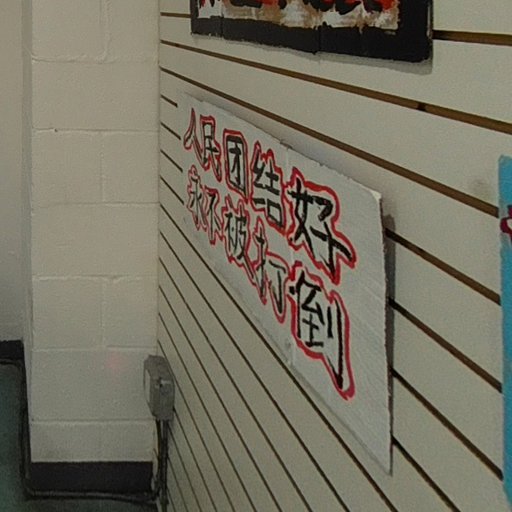 人民团结好
永不被打倒